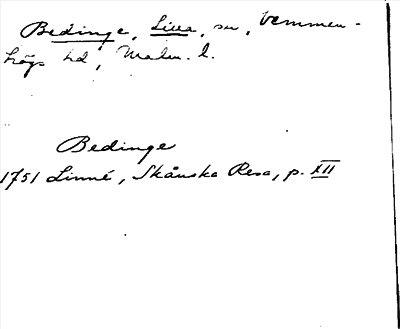 Bedinge, Lilla, sn, Vemmen-
högs hd, Malm. l.
Bedinge
1751 Linné, Skånska Resa, p. XII